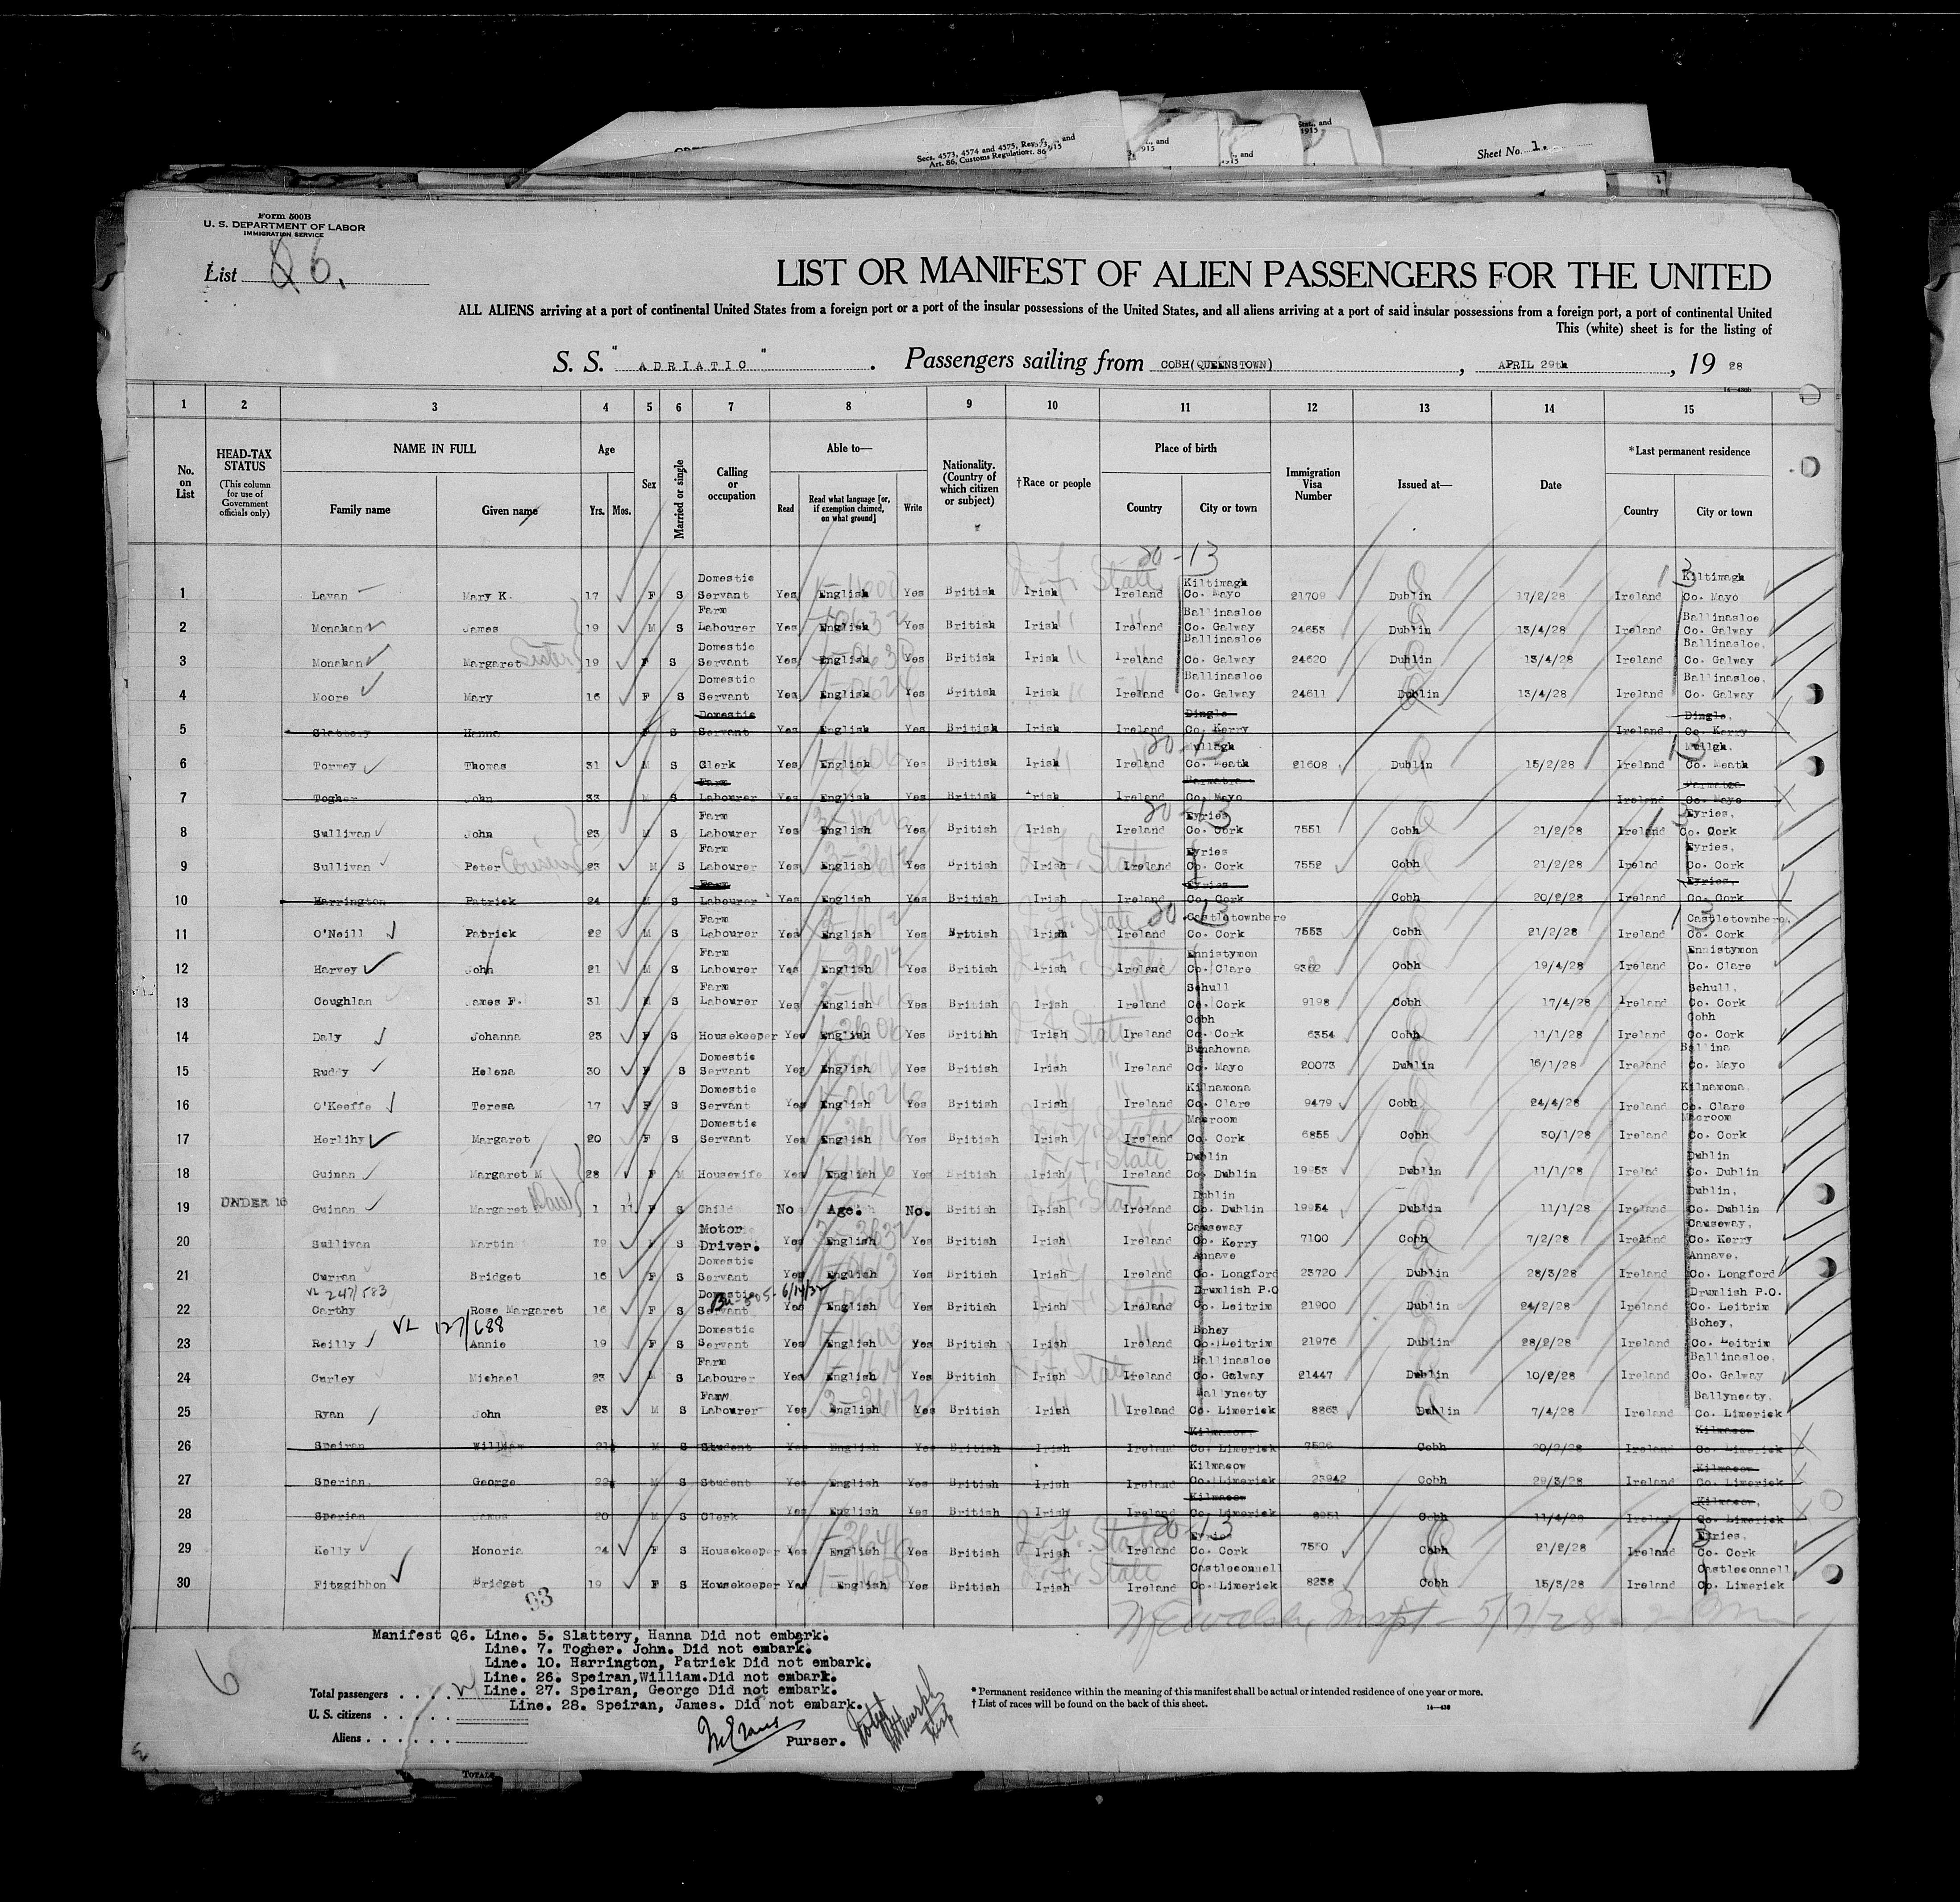 Secs. 4573, 4574 and 4575, Rev.
Art. 86, Customs Regulation
Sheet No. 1.
Form 500B
U. S. DEPARTMENT OF LABOR
IMMIGRATION SERVICE
List Q6.
LIST OR MANIFEST OF ALIEN PASSENGERS FOR THE UNITED
ALL ALIENS arriving at a port of continental United States from a foreign port or a port of the insular possessions of the United States, and all aliens arriving at a port of said insular possessions from a foreign port, a port of continental United
This (white) sheet is for the listing of
S. S. "ADRIATIC". Passengers sailing from COBH(QUEENSTOWN), APRIL 29th, 19 28
1 2 3 4 5 6 7 8 9 10 11 12 13 14 15
No. on List
HEAD-TAX STATUS (This column for use of Government officials only)
NAME IN FULL Family name Given name
Age Yrs. Mos.
Sex
Married or single
Calling or occupation
Able to— Read Read what language [or, if exemption claimed, on what ground] Write
Nationality. (Country of which citizen or subject)
†Race or people
Place of birth Country City or town
Immigration Visa Number
Issued at—
Date
*Last permanent residence Country City or town
1 Lavan Mary K. 17 F S Domestic Servant Yes English Yes British Irish Ireland Kiltimagh Co. Mayo 21709 Dublin 17/2/28 Ireland Kiltimagh Co. Mayo
2 Monahan James 19 M S Farm Labourer Yes English Yes British Irish Ireland Ballinasloe Co. Galway 24653 Dublin 13/4/28 Ireland Ballinasloe Co. Galway
3 Monahan Margaret Sister 19 F S Domestic Servant Yes English Yes British Irish Ireland Ballinasloe Co. Galway 24620 Dublin 13/4/28 Ireland Ballinasloe, Co. Galway
4 Moore Mary 16 F S Domestic Servant Yes English Yes British Irish Ireland Ballinasloe Co. Galway 24611 Dublin 13/4/28 Ireland Ballinasloe, Co. Galway
5 Slattery Hanna F S Domestic Servant Yes English Yes British Irish Ireland Dingle Co. Kerry Ireland Dingle, Co. Kerry
6 Tormey Thomas 31 M S Clerk Yes English Yes British Irish Ireland Mullagh Co. Meath 21608 Dublin 15/2/28 Ireland Mullgh. Co. Meath
7 Togher John 33 M S Farm Labourer Yes English Yes British Irish Ireland Co. Mayo Ireland Co. Mayo
8 Sullivan John 23 M S Farm Labourer Yes English Yes British Irish Ireland Eyries Co. Cork 7551 Cobh 21/2/28 Ireland Eyries, Co. Cork
9 Sullivan Peter Cousin 23 M S Farm Labourer Yes English Yes British Irish Ireland Eyries Co. Cork 7552 Cobh 21/2/28 Irelnd Eyries, Co. Cork
10 Harrington Patrick 24 M S Farm Labourer Yes English Yes British Irish Ireland Eyries Co. Cork Cobh 20/2/28 Ireland Eyries, Co. Cork
11 O'Neill Patrick 22 M S Farm Labourer Yes English Yes British Irish Ireland Castletownbere Co. Cork 7553 Cobh 21/2/28 Ireland Castletownbere, Co. Cork
12 Harvey John 21 M S Farm Labourer Yes English Yes British Irish Ireland Ennistymon Co. Clare 9362 Cobh 19/4/28 Ireland Ennistymon Co. Clare
13 Coughlan James F. 31 M S Farm Labourer Yes English Yes British Irish Ireland Schull Co. Cork 9198 Cobh 17/4/28 Ireland Schull, Co. Cork
14 Daly Johanna 23 F S Housekeeper Yes English Yes British Irish Ireland Cobh Co. Cork 6354 Cobh 11/1/28 Ireland Cobh Co. Cork
15 Ruddy Helena 30 F S Domestic Servant Yes English Yes British Irish Ireland Bunahowna Co. Mayo 20073 Dublin 16/1/28 Ireland Ballina Co. Mayo
16 O'Keeffe Teresa 17 F S Domestic Servant Yes English Yes British Irish Ireland Kilnamona Co. Clare 9479 Cobh 24/4/28 Ireland Kilnamona, Co. Clare
17 Herlihy Margaret 20 F S Domestic Servant Yes English Yes British Irish Ireland Macroom Co. Cork 6855 Cobh 30/1/28 Ireland Macroom Co. Cork
18 Guinan Margaret M 28 F M Housewife Yes English Yes British Irish Ireland Dublin Co. Dublin 19953 Dublin 11/1/28 Irelnd Dublin Co. Dublin
19 UNDER 16 Guinan Margaret 1 11 F S Child No Age. No. British Irish Ireland Dublin Co. Dublin 19954 Dublin 11/1/28 Ireland Dublin, Co. Dublin
20 Sullivan Martin 19 S Motor Driver. Yes English Yes British Irish Ireland Causeway Co. Kerry 7100 Cobh 7/2/28 Ireland Causeway, Co. Kerry
21 Curran Bridget 16 F S Domestic Servant Yes English Yes British Irish Ireland Annave Co. Longford 23720 Dublin 28/3/28 Ireland Annave, Co. Longford
VL 247/583
22 Carthy Rose Margaret 16 F S Domestic Servant Yes English Yes British Irish Ireland Drumlish P.O Co. Leitrim 21900 Dublin 24/2/28 Ireland Drumlish P.O. Co. Leitrim
VL 127/688
23 Reilly Annie 19 F S Domestic Servant Yes English Yes British Irish Ireland Bohey Co. Leitrim 21976 Dublin 28/2/28 Ireland Bohey, Co. Leitrim
24 Curley Michael 23 M S Farm Labourer Yes English Yes British Irish Ireland Ballinasloe Co. Galway 21447 Dublin 10/2/28 Ireland Ballinasloe, Co. Galway
25 Ryan John 23 M S Farm Labourer Yes English Yes British Irish Ireland Ballyneety Co. Limerick 8863 Dublin 7/4/28 Ireland Ballyneety, Co. Limerick
26 Speiran William 21 M S Student Yes English Yes British Irish Ireland Kilmacow Co. Limerick 7526 Cobh 20/2/28 Ireland Kilmacow Co. Limerick
27 Sperian, George 22 M S Student Yes English Yes British Irish Ireland Kilmacow Co. Limerick 23942 Cobh 29/3/28 Ireland Kilmacow Co. Limerick
28 Sperian James 20 M S Clerk Yes English Yes British Irish Ireland Kilmacow Co. Limerick Cobh 11/4/28 Ireland Kilmacow, Co. Limerick
29 Kelly Honoria 24 F S Housekeeper Yes English Yes British Irish Ireland Eyries Co. Cork 7550 Cobh 21/2/28 Ireland Eyries, Co. Cork
30 Fitzgibbon Bridget 19 F S Housekeeper Yes English Yes British Irish Ireland Castleconnell Co. Limerick 8238 Cobh 15/3/28 Ireland Castleconnell Co. Limerick
93
Manifest Q6. Line. 5. Slattery, Hanna Did not embark.
Line. 7. Togher. John. Did not embark.
Line. 10. Harrington, Patrick Did not embark.
Line. 26. Speiran,William.Did not embark.
Line. 27. Speiran, George Did not embark.
Line. 28. Speiran, James. Did not embark.
6
Total passengers
U. S. citizens
Aliens
Purser.
* Permanent residence within the meaning of this manifest shall be actual or intended residence of one year or more.
† List of races will be found on the back of this sheet.
14—430
TOTALS